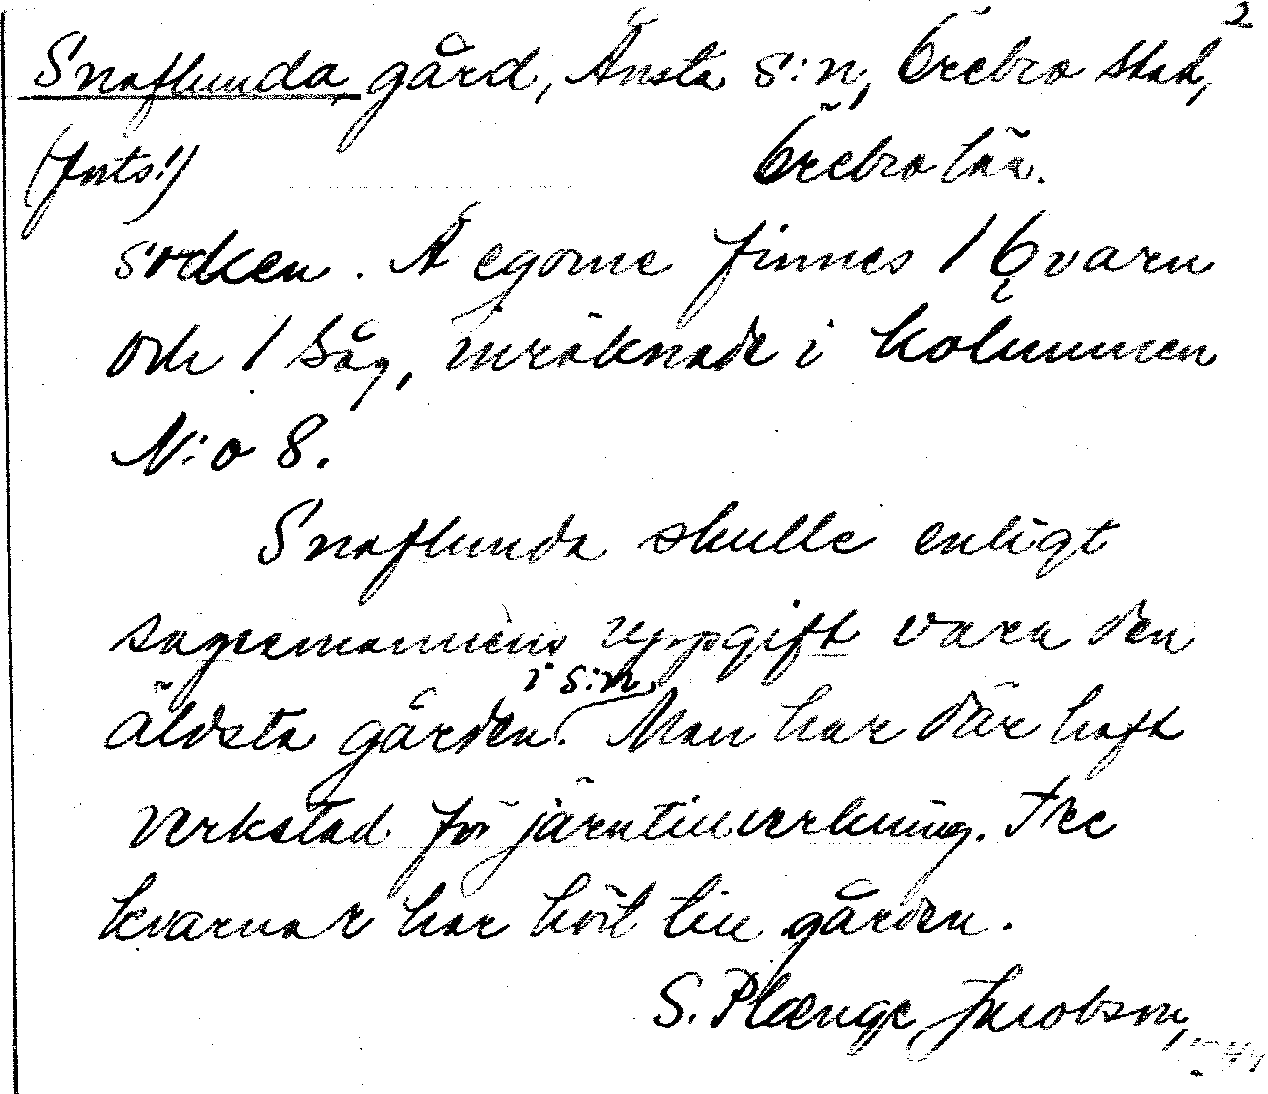 2
Snaflunda, gård, Ånsta s:n, Örebro stad,
(forts!) Örebro län.
socken. Å egorne finnes 1 Qvarn
och 1 Såg, inräknade i kolumnen
N:o 8.
Snaflunda skulle enligt
sagesmannens uppgift vara den
i s:n
äldsta gården. Man har där haft
verkstad för järntillverkning. Tre
kvarnar har hört till gården.
S. Plænge Jacobson,